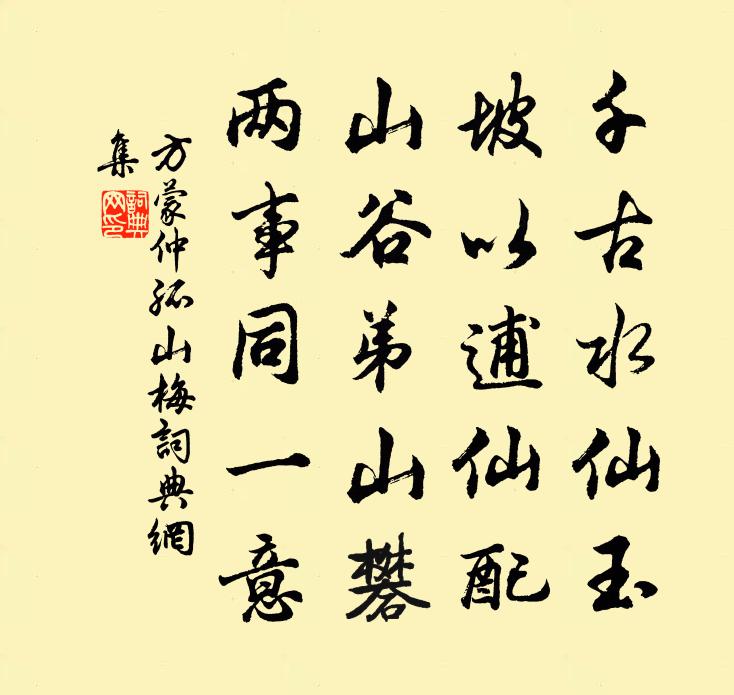 千古水仙玉
坡以逋仙配
山谷弟山礬
两事同一意
方蒙仲孤山梅詞典網
集
詞典
网印